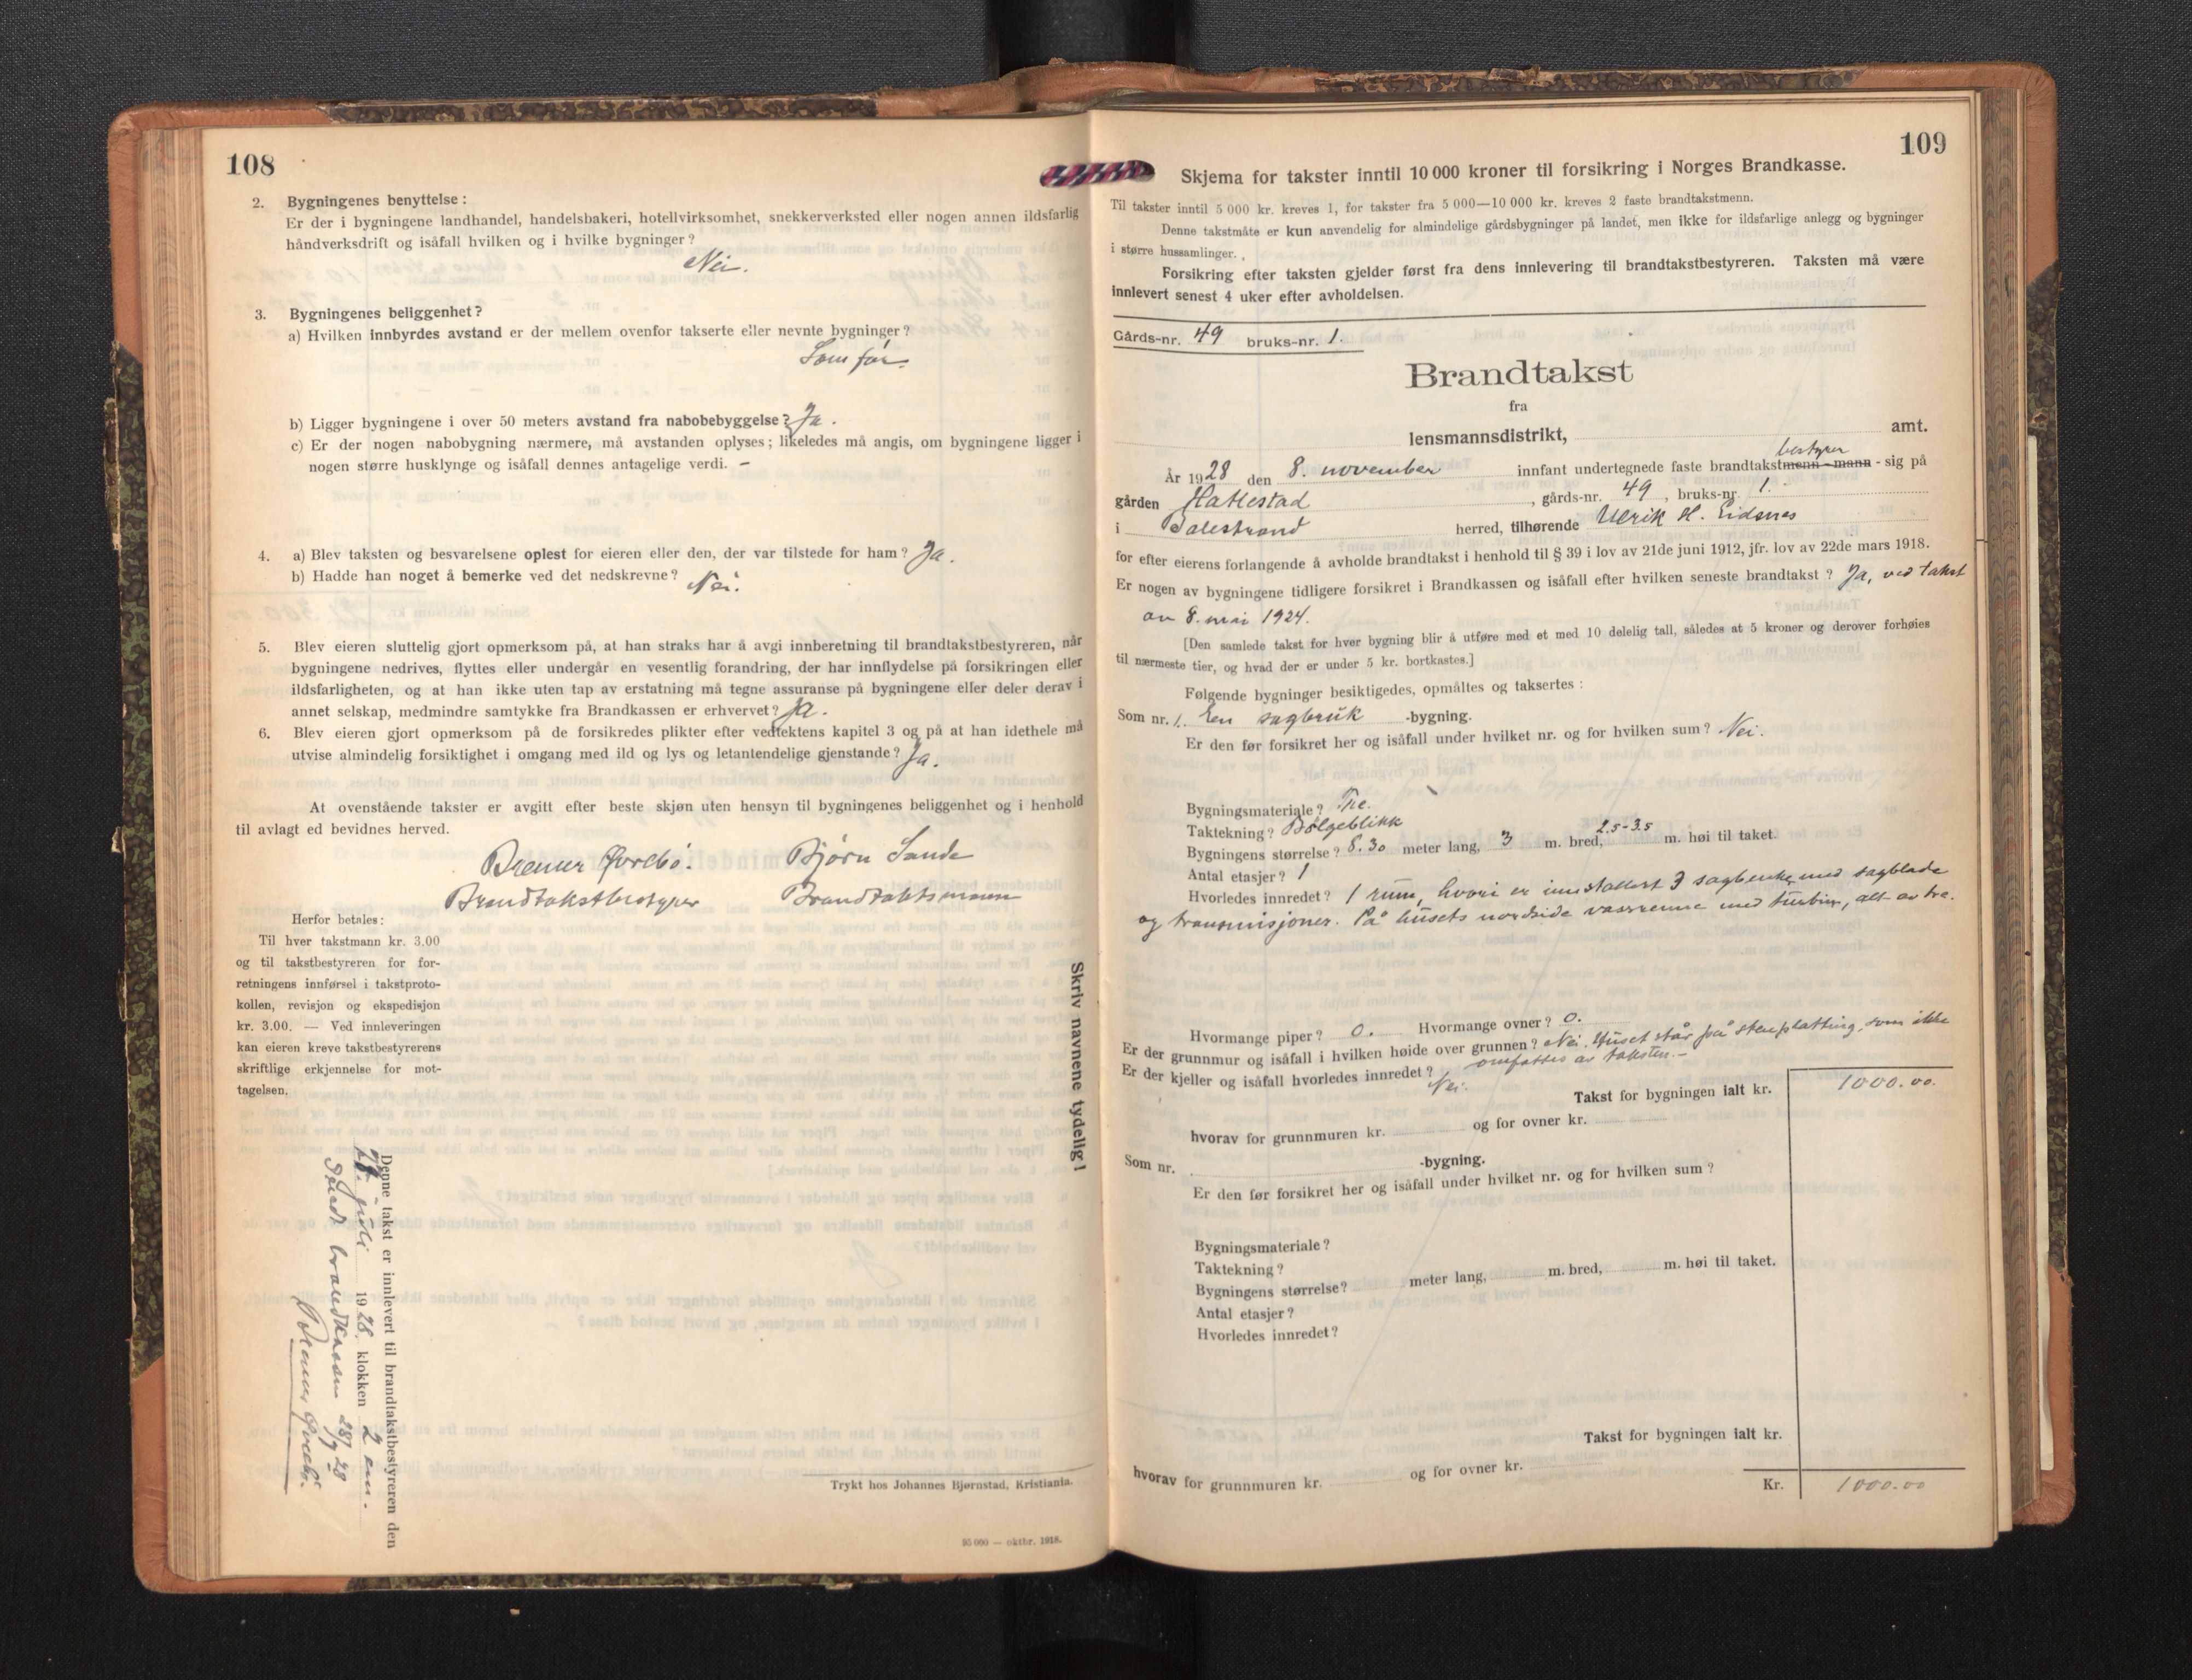 108
2. Bygningenes benyttelse :
Er der i bygningene landhandel, handelsbakeri, hotellvirksomhet, snekkerverksted eller nogen annen ildsfarlig
håndverksdrift og isåfall hvilken og i hvilke bygninger?
Nei.
3. Bygningenes beliggenhet?
a) Hvilken innbyrdes avstand er der mellem ovenfor takserte eller nevnte bygninger?
Som før.
b) Ligger bygningene i over 50 meters avstand fra nabobebyggelse? Ja.
c) Er der nogen nabobygning nærmere, må avstanden oplyses; likeledes må angis, om bygningene ligger i
nogen større husklynge og isåfall dennes antagelige verdi. —
4. a) Blev taksten og besvarelsene oplest for eieren eller den, der var tilstede for ham? Ja.
b) Hadde han noget å bemerke ved det nedskrevne? Nei.
5. Blev eieren sluttelig gjort opmerksom på, at han straks har å avgi innberetning til brandtakstbestyreren, når
bygningene nedrives, flyttes eller undergår en vesentlig forandring, der har innflydelse på forsikringen eller
ildsfarligheten, og at han ikke uten tap av erstatning må tegne assuranse på bygningene eller deler derav i
annet selskap, medmindre samtykke fra Brandkassen er erhvervet? Ja.
6. Blev eieren gjort opmerksom på de forsikredes plikter efter vedtektens kapitel 3 og på at han idethele må
utvise almindelig forsiktighet i omgang med ild og lys og letantendelige gjenstande? Ja.
At ovenstående takster er avgitt efter beste skjøn uten hensyn til bygningenes beliggenhet og i henhold
til avlagt ed bevidnes herved.
Bremer Øvrebø. Bjørn Sande
Brandtakstbestyrer Brandtakstmann
Herfor betales:
Til hver takstmann kr. 3.00
og til takstbestyreren for for-
retningens innførsel i takstproto-
kollen, revisjon og ekspedisjon
kr. 3.00. — Ved innleveringen
kan eieren kreve takstbestyrerens
skriftlige erkjennelse for mot-
tagelsen.
Skriv navnene tydelig!
Denne takst er innlevert til brandtakstbestyreren den
juli 1928 klokken 2 em.
Sendt brandkassen 28/7 28
Bremer Øvrebø.
Trykt hos Johannes Bjørnstad, Kristiania.
95 000 — oktbr. 1918.
109
Skjema for takster inntil 10 000 kroner til forsikring i Norges Brandkasse.
Til takster inntil 5 000 kr. kreves 1, for takster fra 5 000—10 000 kr. kreves 2 faste brandtakstmenn.
Denne takstmåte er kun anvendelig for almindelige gårdsbygninger på landet, men ikke for ildsfarlige anlegg og bygninger
i større hussamlinger.
Forsikring efter taksten gjelder først fra dens innlevering til brandtakstbestyreren. Taksten må være
innlevert senest 4 uker efter avholdelsen.
Gårds-nr. 49 bruks-nr. 1.
Brandtakst
fra
lensmannsdistrikt, amt.
bestyrer
År 1928 den 8. november innfant undertegnede faste brandtakstmenn - mann - sig på
gården Hattestad, gårds-nr. 49, bruks-nr. 1.
i Balestrand herred, tilhørende Ulrik H. Eidsnes
for efter eierens forlangende å avholde brandtakst i henhold til § 39 i lov av 21de juni 1912, jfr. lov av 22de mars 1918.
Er nogen av bygningene tidligere forsikret i Brandkassen og isåfall efter hvilken seneste brandtakst? Ja, ved takst
av 8. mai 1924.
[Den samlede takst for hver bygning blir å utføre med et med 10 delelig tall, således at 5 kroner og derover forhøies
til nærmeste tier, og hvad der er under 5 kr. bortkastes.]
Følgende bygninger besiktigedes, opmåltes og taksertes :
Som nr. 1. Een sagbruk -bygning.
Er den før forsikret her og isåfall under hvilket nr. og for hvilken sum? Nei.
Bygningsmateriale? Tre.
Taktekning? Bølgeblikk
Bygningens størrelse? 8.30 meter lang, 3 m. bred, 2.5-3.5 m. høi til taket.
Antal etasjer? 1
Hvorledes innredet? 1 rum, hvori er innstallert 3 sagbenker med sagblade
og transmisjoner. På husets nordside vassrenne med turbin, alt av tre.
Hvormange piper? 0. Hvormange ovner? 0.
Er der grunnmur og isåfall i hvilken høide over grunnen? Nei. Huset står på stenplatting, som ikke
omfattes av taksten.—
Er der kjeller og isåfall hvorledes innredet? Nei.
Takst for bygningen ialt kr. 1000.00.
hvorav for grunnmuren kr. og for ovner kr.
Som nr. -bygning.
Er den før forsikret her og isåfall under hvilket nr. og for hvilken sum?
Bygningsmateriale?
Taktekning?
Bygningens størrelse? meter lang, m. bred, m. høi til taket.
Antal etasjer?
Hvorledes innredet?
Takst for bygningen ialt kr.
hvorav for grunnmuren kr. og for ovner kr.
Kr. 1000.00